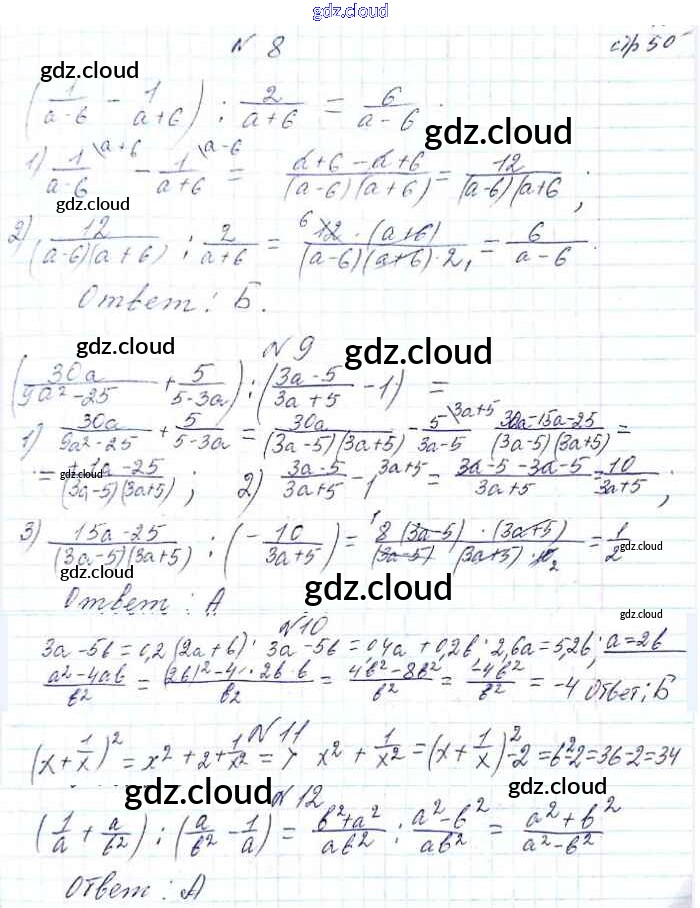 gdz.cloud
N 8 стр 50
gdz.cloud
(1/(a-6) - 1/(a+6)) : 2/(a+6) = 6/(a-6).
gdz.cloud
1) 1/(a-6) \a+6 - 1/(a+6) \a-6 = (a+6-a+6)/((a-6)(a+6)) = 12/((a-6)(a+6 ;
gdz.cloud
2) 12/((a-6)(a+6)) : 2/(a+6) = 6 12·(a+6)/((a-6)(a+6)·2, = 6/(a-6).
Ответ: Б.
gdz.cloud
N 9
gdz.cloud
(30a/(9a²-25) + 5/(5-3a)) : ((3a-5)/(3a+5) - 1) =
1) 30a/(9a²-25) + 5/(5-3a) = 30a/((3a-5)(3a+5)) - 5/(3a-5) \3a+5 (30a-15a-25)/((3a-5)(3a+5)) =
= -25/((3a-5)(3a+5)) ; 2) (3a-5)/(3a+5) - 1 3a+5 = (3a-5-3a-5)/(3a+5) = 10/(3a+5) ;
gdz.cloud
3) (15a-25)/((3a-5)(3a+5)) : (-10/(3a+5)) = (3a-5)·(3a+5)/((3a-5)(3a+5) 2 = 1/2
gdz.cloud
gdz.cloud
Ответ: А
gdz.cloud
N 10
3a-5b=0,2(2a+b); 3a-5b=0,4a+0,2b; 2,6a=5,2b; a=2b
(a²-4ab)/b² = ((2b)²-4·2b·b)/b² = (4b²-8b²)/b² = -4b²/b² = -4 Ответ; Б
N 11
(x+1/x)² = x²+2+1/x² => x²+1/x² = (x+1/x)²-2=6²-2=36-2=34
gdz.cloud
gdz.cloud
N 12
(1/a + a/b²) : (a/b² - 1/a) = (b²+a²)/ab² : (a²-b²)/ab² = (a²+b²)/(a²-b²)
gdz.cloud
Ответ: А